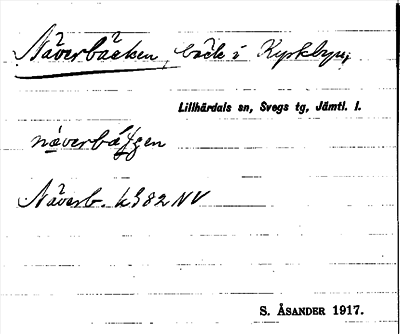 Näverbäcken, bäck i Kyrkbyn;
Lillhärdals sn, Svegs tg, Jämtl. l.
näverbät̬gen
Näverb. kS 82 NV
S. ÅSANDER 1917.